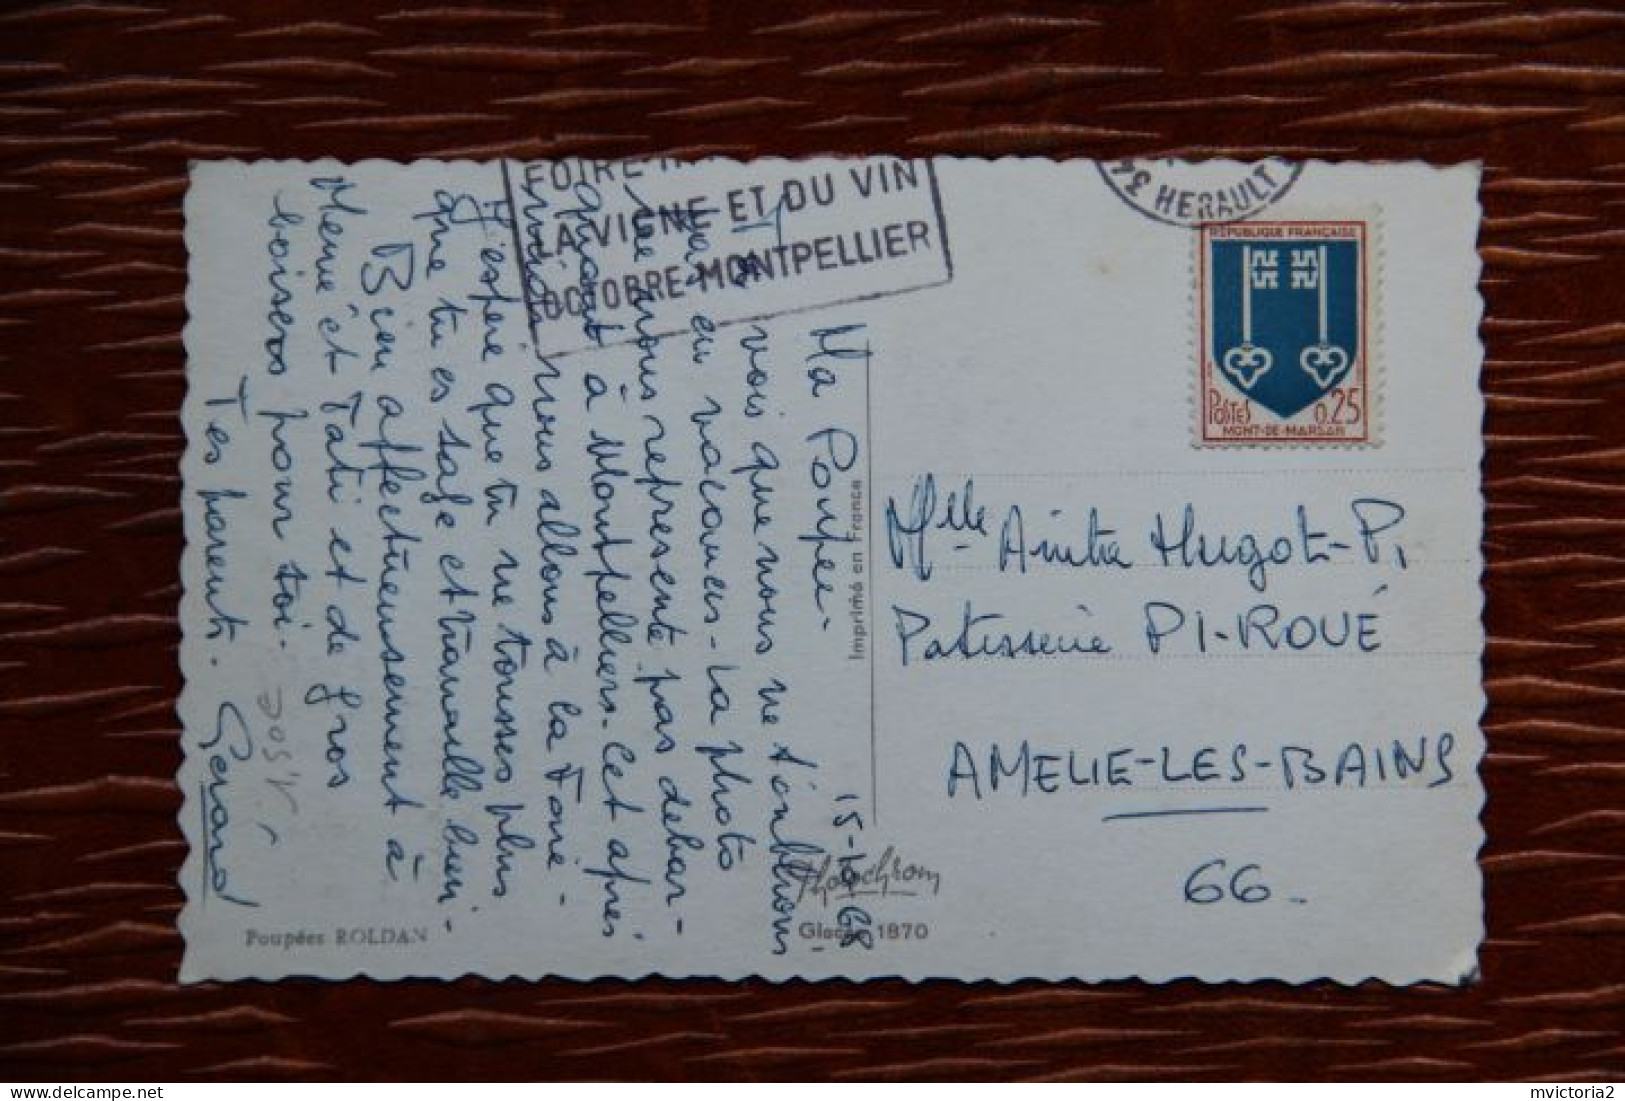 FOIRE
LA VIGNE ET DU VIN
OCTOBRE-MONTPELLIER
34 HERAULT
REPUBLIQUE FRANÇAISE
POSTES 0.25
MONT-DE-MARSAN
15-10-68
Ma Poupée -
vois que nous ne t'oublions
pas en vacances - La photo
ne nous représente pas debar-
quant à Montpellier. Cet après
midi nous allons à la Foire -
J'espère que tu ne tousses plus
que tu es sage et travaille bien -
Bien affectueusement à
Mémé et Tati et de gros
boisers pour toi -
Tes parents. Gérard
Mlle Anita Hugot-Pi
Patisserie PI-ROUÉ
AMELIE-LES-BAINS
66 -
Imprimé en France
Photochrom
Glacée 1870
Poupées ROLDAN
mvictoria2